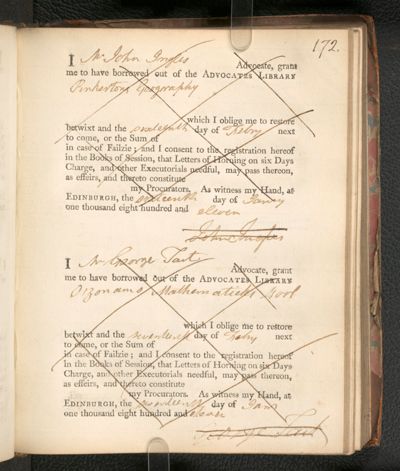 172.
I Mr John Ingles Advocate, grant
me to have borrowed out of the ADVOCATES LIBRARY
Pinkertons Geography
which I oblige me to restore
betwixt and the sixteenth day of Febry next
to come, or the Sum of
in case of Failzie; and I consent to the registration hereof
in the Books of Session, that Letters of Horning on six Days
Charge, and other Executorials needful, may pass thereon,
as effeirs, and thereto constitute
my Procurators. As witness my Hand, at
EDINBURGH, the sixteenth day of Jany
one thousand eight hundred and eleven
John Ingles
I Mr George Tait Advocate, grant
me to have borrowed out of the ADVOCATES LIBRARY
Ozonams Mathematicks
which I oblige me to restore
betwixt and the seventeenth day of Febry next
to come, or the Sum of
in case of Failzie; and I consent to the registration hereof
in the Books of Session, that Letters of Horning on six Days
Charge, and other Executorials needful, may pass thereon,
as effeirs, and thereto constitute
my Procurators. As witness my Hand, at
EDINBURGH, the seventeenth day of Jany
one thousand eight hundred and eleven
George Tait